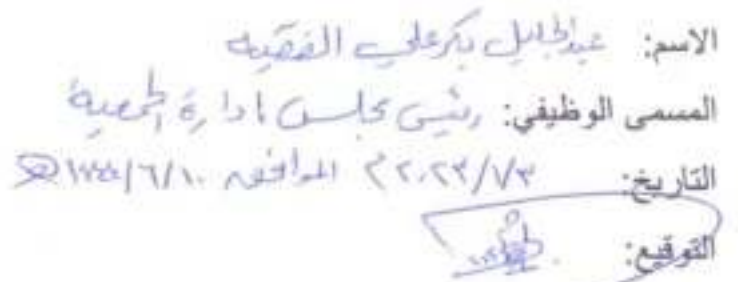 الاسم: عبدالجليل بكر علي الفقيه
المسمى الوظيفي: رئيس مجلس ادارة الجمعية
التاريخ: ٢٠٢٣/١/٣م الموافق ١٤٤٤/٦/١٠هـ
التوقيع: